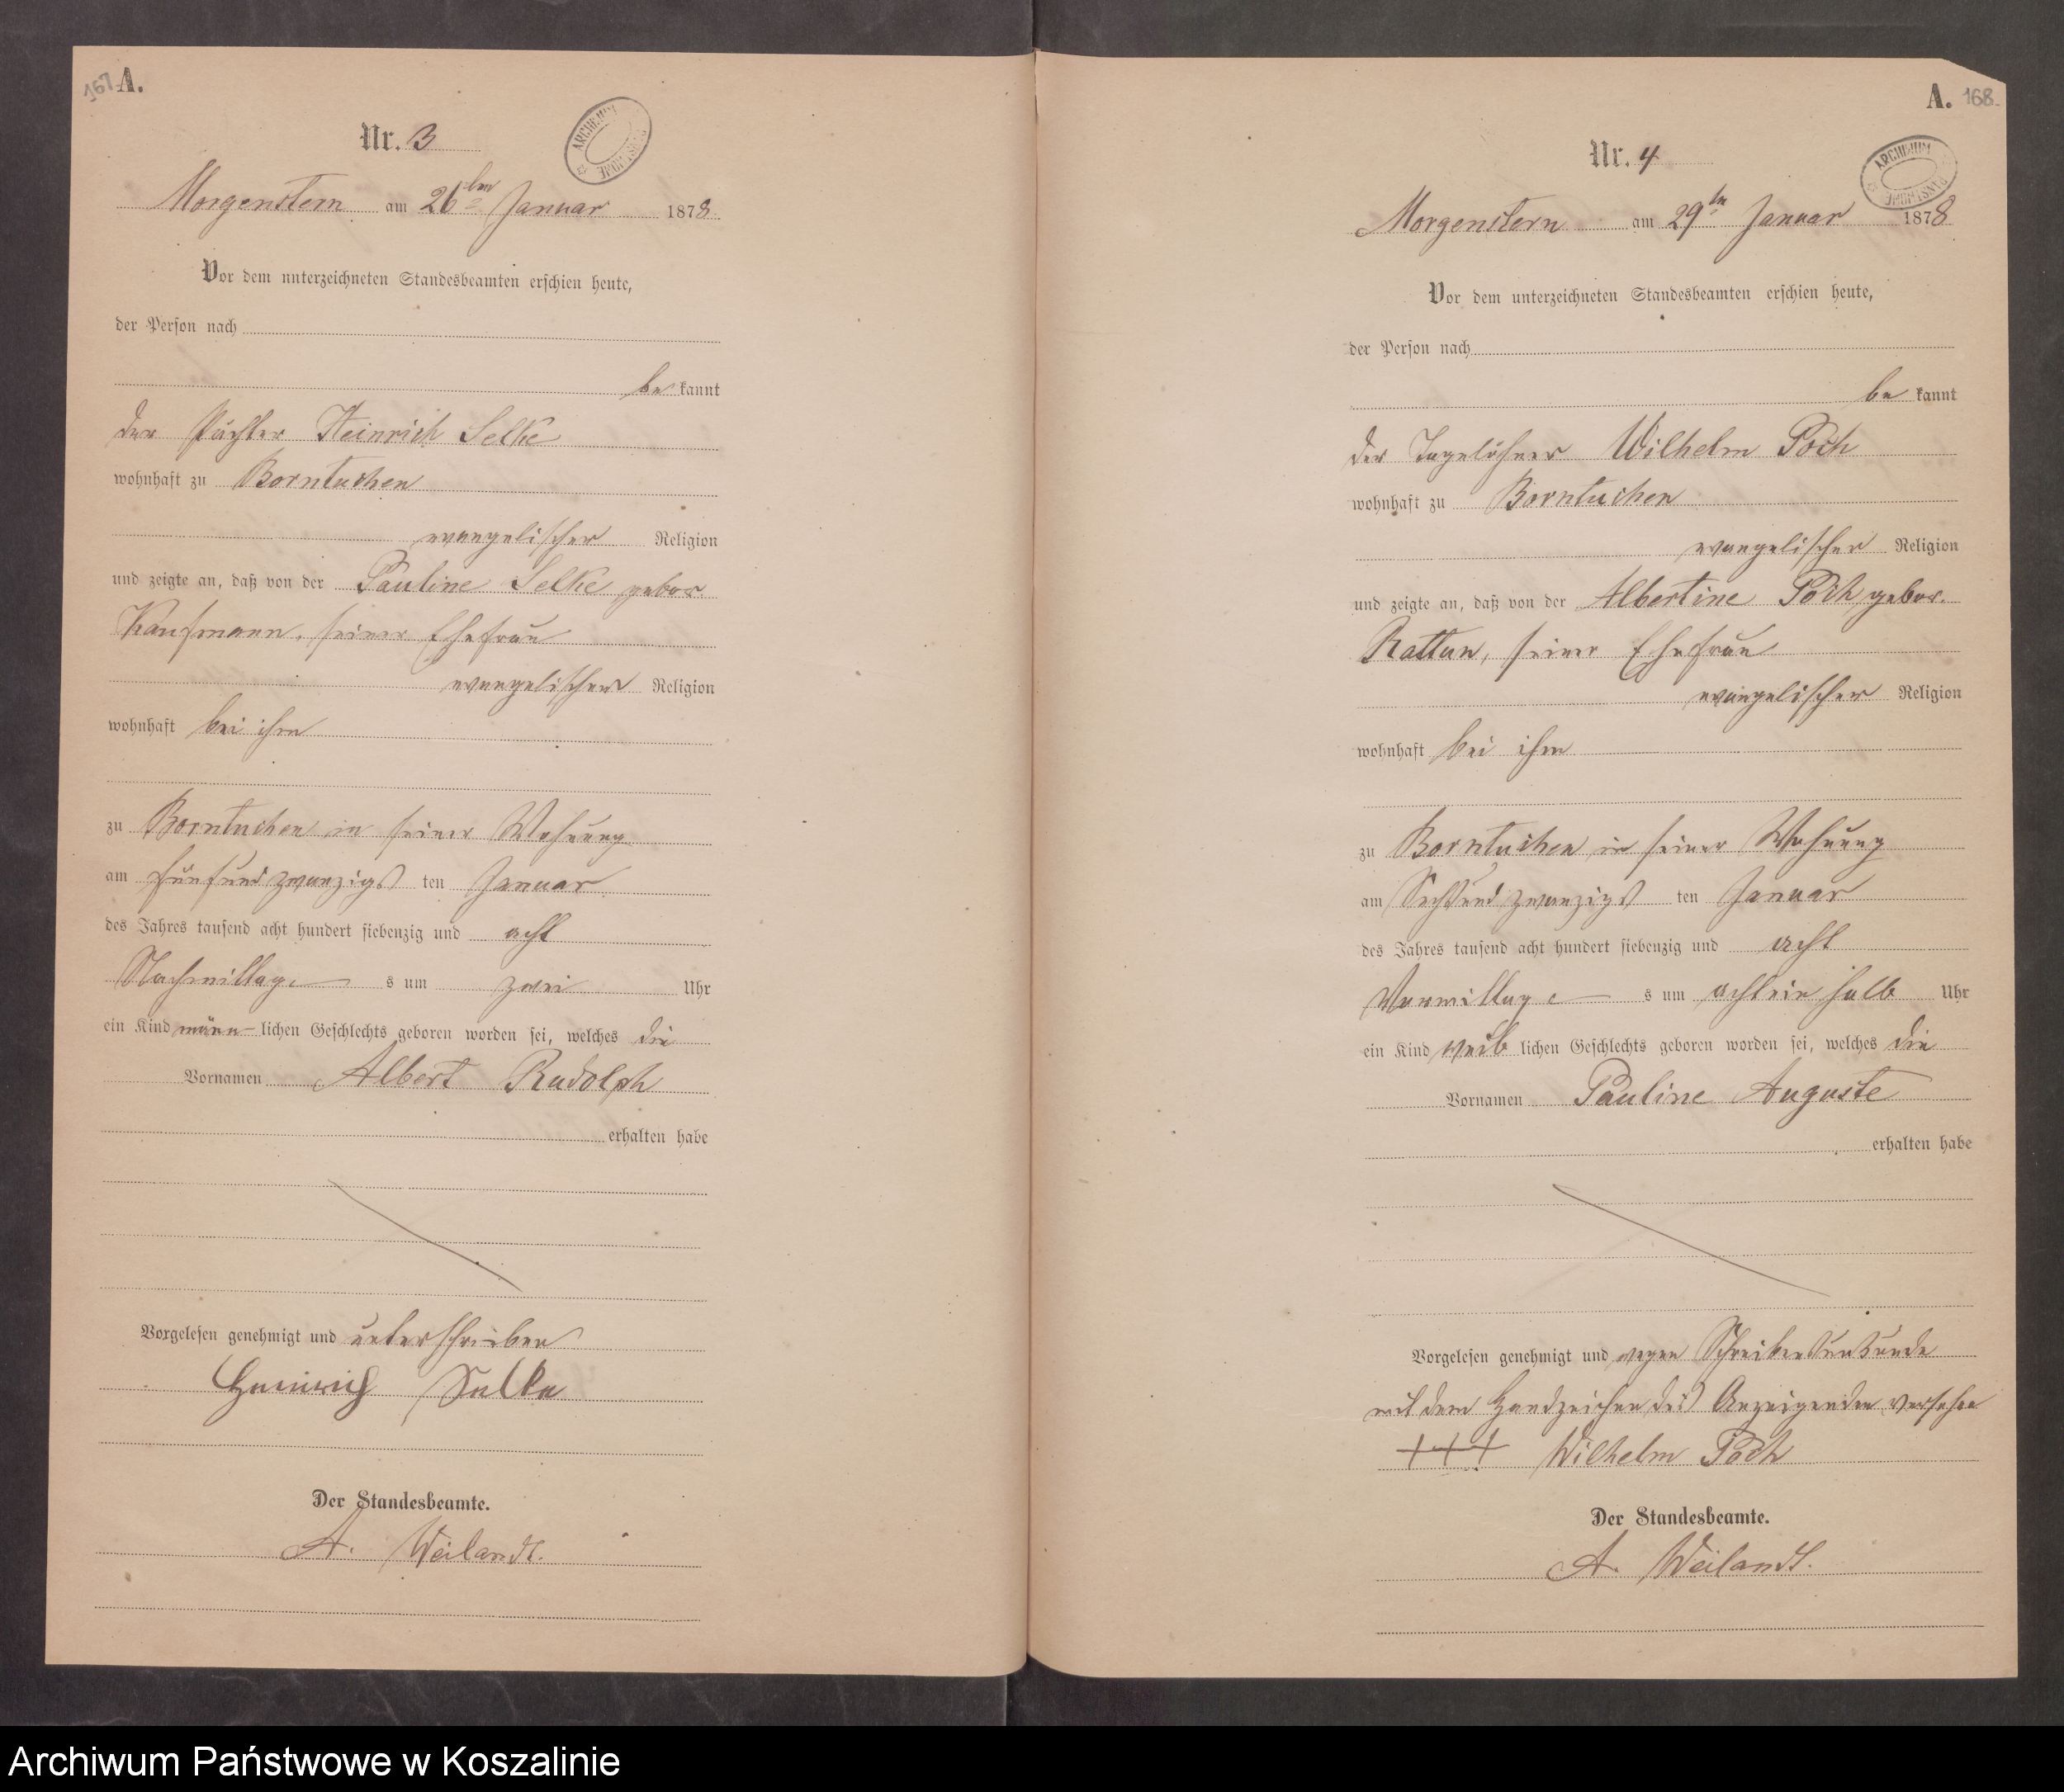 167 A.
Nr. 3
ARCHIWUM
Morgenstern am 26ten Januar 1878.
Vor dem unterzeichneten Standesbeamten erschien heute,
der Person nach
be kannt
der Pächter Heinrich Selke
wohnhaft zu Borntuchen
evangelischer Religion
und zeigte an, daß von der Pauline Selke gebor.
Kaufmann, seiner Ehefrau
evangelischer Religion
wohnhaft bei ihm
zu Borntuchen in seiner Wohnung
am fünfundzwanzigs ten Januar
des Jahres tausend acht hundert siebenzig und acht
Nachmittage s um zwei Uhr
ein Kind männ lichen Geschlechts geboren worden sei, welches die
Vornamen Albert Rudolph
erhalten habe
Vorgelesen genehmigt und unterschrieben
Heinrich Selke
Der Standesbeamte.
A. Weilandt.
A. 168.
Nr. 4
ARCHIWUM
Morgenstern am 29ten Januar 1878
Vor dem unterzeichneten Standesbeamten erschien heute,
der Person nach
be kannt
der Tagelöhner Wilhelm Poch
wohnhaft zu Borntuchen
evangelischer Religion
und zeigte an, daß von der Albertine Poch gebor.
Rattun, seiner Ehefrau
evangelischer Religion
wohnhaft bei ihm
zu Borntuchen in seiner Wohnung
am Sechsundzwanzigs ten Januar
des Jahres tausend acht hundert siebenzig und acht
Vormittage s um achtein halb Uhr
ein Kind weib lichen Geschlechts geboren worden sei, welches die
Vornamen Pauline Auguste
erhalten habe
Vorgelesen genehmigt und wegen Schreibensunkunde
mit dem Handzeichen des Anzeigenden versehen
+++ Wilhelm Poch
Der Standesbeamte.
A. Weilandt.
Archiwum Państwowe w Koszalinie